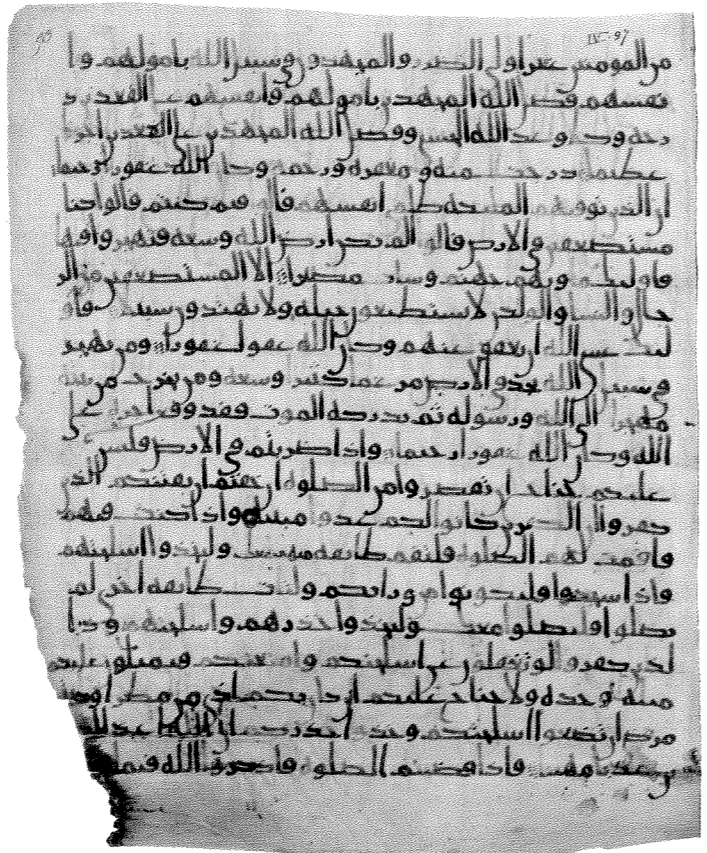 من المومنين غير اولي الضرر والمجهدون في سبيل الله بامولهم وا
نفسهم فضل الله المجهدين بامولهم وانفسهم على القعدين د
رجه وكلا وعد الله الحسنى وفضل الله المجهدين على القعدين اجرا
عظيما درجت منه ومغفره ورحمه وكان الله غفورا رحيما
ان الذين توفيهم المليكه ظلمي انفسهم قالوا فيم كنتم قالوا كنا
مستضعفين في الارض قالوا الم تكن ارض الله وسعه فتهجروا فيها
فاوليك ماويهم جهنم وسات مصيرا الا المستضعفين من الر
جال والنسا والولدن لا يستطيعون حيله ولا يهتدون سبيلا فاو
ليك عسى الله ان يعفو عنهم وكان الله عفوا غفورا ومن يهجر
في سبيل الله يجد في الارض مرغما كثيرا وسعه ومن يخرج من بيته
مهجرا الى الله ورسوله ثم يدركه الموت فقد وقع اجره على
الله وكان الله غفورا رحيما واذا ضربتم في الارض فليس
عليكم جناح ان تقصروا من الصلوه ان خفتم ان يفتنكم الذين
كفروا ان الكفرين كانوا لكم عدوا مبينا واذا كنت فيهم
فاقمت لهم الصلوه فلتقم طايفه منهم معك ولياخذوا اسلحتهم
فاذا سجدوا فليكونوا من ورايكم ولتات طايفه اخرى لم
يصلوا فليصلوا معك ولياخذوا حذرهم واسلحتهم ود ا
لذين كفروا لو تغفلون عن اسلحتكم وامتعتكم فيميلون عليكم
ميله وحده ولا جناح عليكم ان كان بكم اذى من مطر او كنتم
مرضى ان تضعوا اسلحتكم وخذوا حذركم ان الله اعد للكف
رين عذابا مهينا فاذا قضيتم الصلوه فاذكروا الله قيما